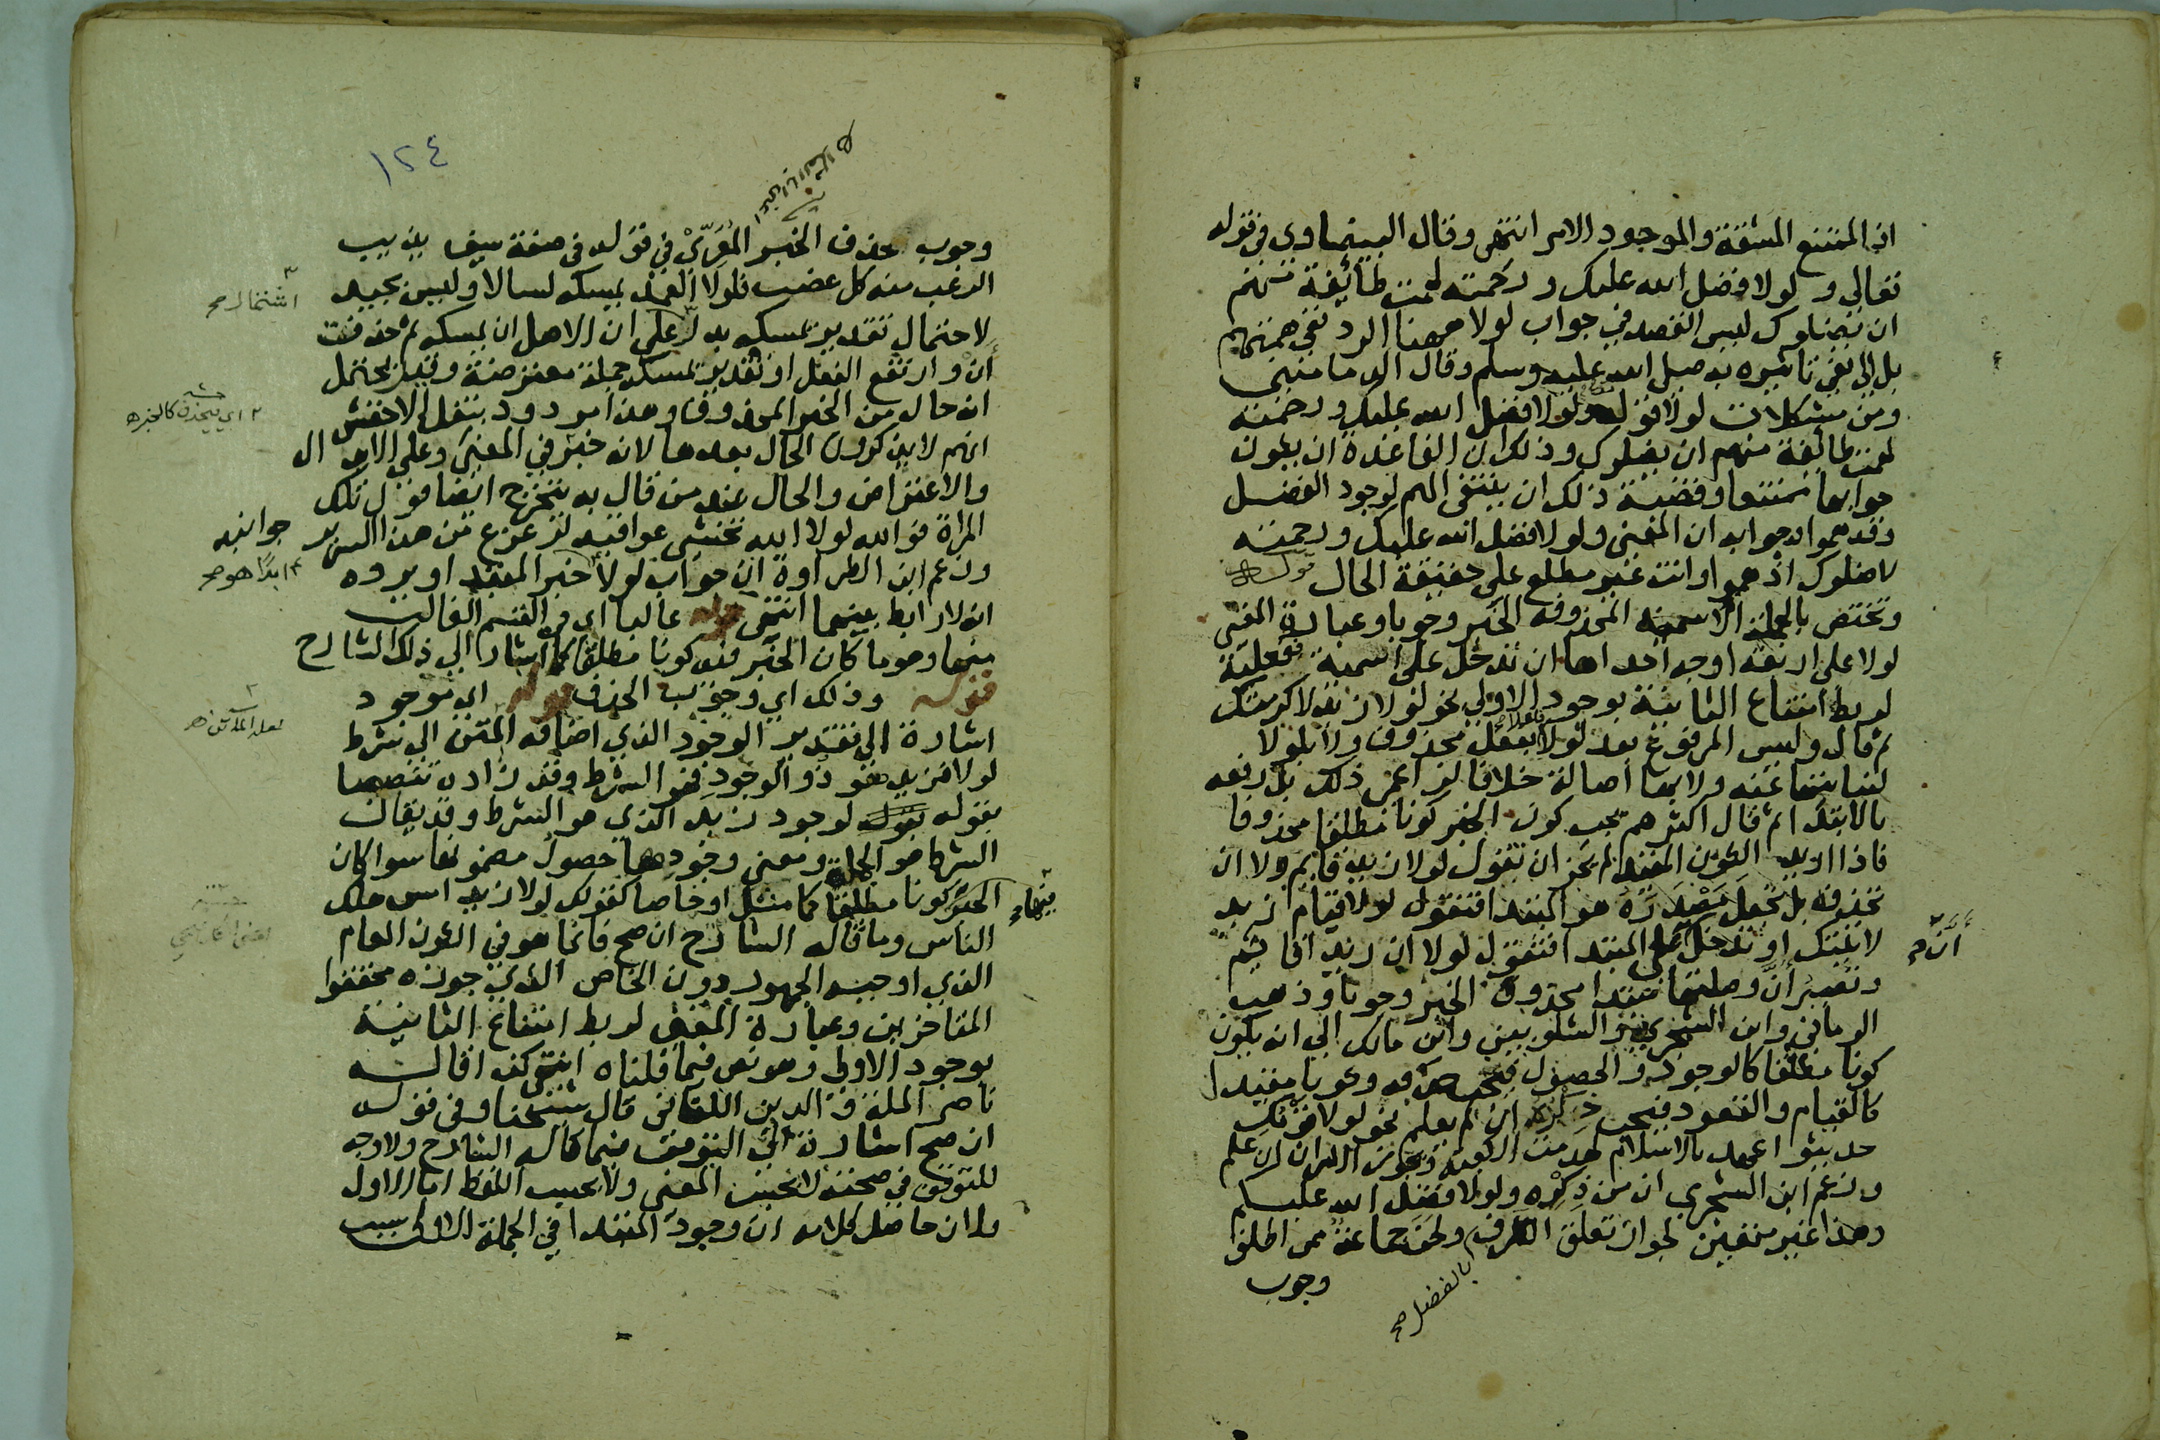 اذ الممتنع المشقة والموجود الامر انتهى وقال البيضاوي في قوله
تعالى ولولا فضل الله عليك ورحمته لهمت طائفة منهم
ان يضلوك ليس القصد في جواب لولا ههنا الرد نفي همتهم
بل الى نفي تاثيره به صلى الله عليه وسلم وقال الدماميني
ومن مشكلات لولا قوله ولولا فضل الله عليك ورحمته
لهمت طائفة منهم ان يضلوك وذلك ان القاعدة ان يكون
جوابها ممتنعا وقضية ذلك ان ينتفي الهم لوجود الفضل
وقد هموا وجوابه ان المعنى ولولا فضل الله عليك ورحمته
لاضلوك اذ هموا وانت غير مطلع على حقيقة الحال قوله
وتختص بالجملة الاسمية المحذوفة الخبر وجوبا وعبارة المغني
لولا على اربعة اوجه احداها ان تدخل على اسمية ففعلية
لربط امتناع الثانية بوجود الاولى نحو لولا زيد لاكرمتك
ثم قال وليس المرفوع بعد لولا فاعلا بفعل محذوف ولا بلولا
لنيابتها عنه ولا بها اصالة خلافا لزاعمي ذلك بل رفعه
بالابتدا ثم قال اكثرهم يجب كون الخبر كونا مطلقا محذوفا
فاذا اريد الكون المقيد لم يجز ان تقول لولا زيد قايم ولا ان
تحذفه بل تجعل مصدره هو المبتدا فتقول لولا قيام زيد
لاتيتك او تدخل ان على المبتدا فتقول لولا ان زيدا قايم
وتصير أنّ وصلتها مبتدا محذوف الخبر وجوبا وذهب
الرماني وابن الشجري والشلوبيني وابن مالك الى انه يكون
كونا مطلقا كالوجود والحصول فيجب حذفه وكونا مقيدا
كالقيام والقعود فيجب ذكره ان لم يعلم نحو لولا قومك
حديثو عهد بالاسلام لهدمت الكعبة ويجوز الامران ان علم
وزعم ابن الشجري ان من ذكره ولولا فضل الله عليكم
وهذا غير متعين لجواز تعلق الظرف بالفضل صح ولحن جماعة ممن اطلق
وجوب
أنّ صح
١٢٤
وجوب حذف الخبر المعَرّيْ في قوله في صفة سيف يذيب
الرعب منه كل عضب فلولا الغمد يمسكه لسالا وليس بجيد
لاحتمال تقدير يمسكه بدل اشتمال صح على ان الاصل ان يمسكه ثم حذفت
أن وارتفع الفعل او تقدير يمسكه جملة معترضة وقيل يحتمل
انه حال من الخبر المحذوف وهذا مردود بنقل الاخفش
انهم لا يذكرون الحال بعدها لانه خبر في المعنى وعلى الابدال
والاعتراض والحال عند من قال به يتخرج ايضا قول تلك
المراة فوالله لولا الله تخشى عواقبه لزعزع من هذا السرير جوانبه
وزعم ابن الطراوة ان جواب لولا ابدا هو صح خبر المبتدا ويرده
انه لا رابط بينهما انتهى قوله غالبا اي في القسم الغالب
منها وهو ما كان الخبر فيه كونا مطلقا كما اشار الى ذلك الشارح
قوله وذلك اي وجوب الحذف قوله اي موجود
اشارة الى تقدير الوجود الذي اضافه المتن الى شرط
لولا فزيد هو ذو الوجود فهو الشرط وقد زاده تنصيصا
بقوله لوجود زيد الذي هو الشرط وقد يقال
الشرط هو الجملة ومعنى وجودها حصول مضمونها سوا كان
الخبر فيها صح كونا مطلقا كما مثل او خاصا كقولك لولا زيد اسى هلك
الناس وما قاله الشارح ان صح فانما هو في الكون العام
الذي اوجبه الجمهور دون الخاص الذي جوزه محققوا
المتاخرين وعبارة المغني لربط امتناع الثانية
بوجود الاولى وهو نص فيما قلناه انتهى كذا قاله
ناصر الملة والدين اللقاني قال شيخنا وفي قوله
ان صح اشارة الى التوقف فيما قاله الشارح ولا وجه
للتوقف في صحته لا بحسب المعنى ولا بحسب اللفظ اما الاول
فلان حاصل كلامه ان وجود المبتدا في الجملة الاولى سبب